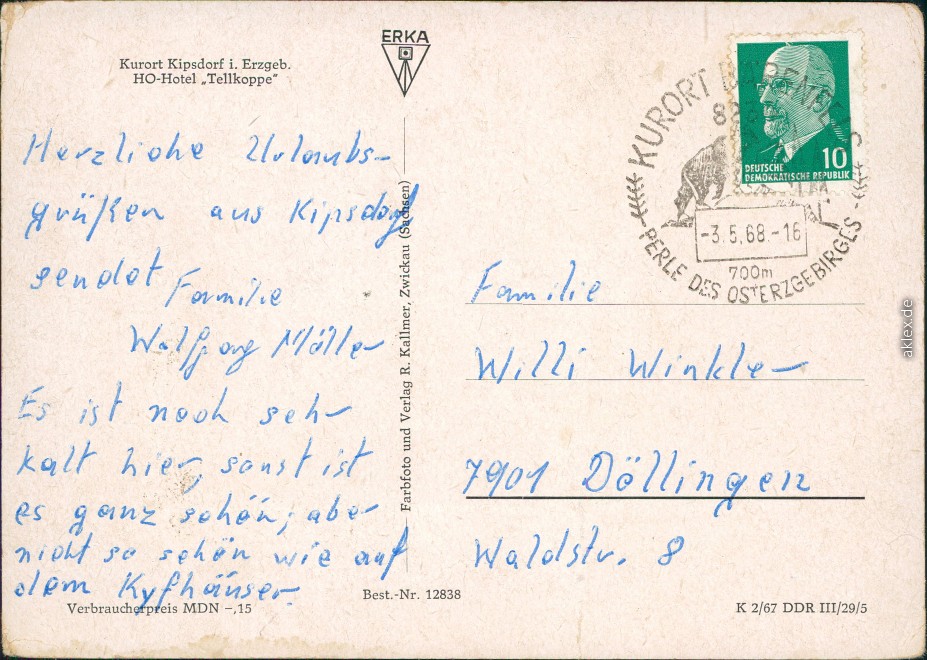 Kurort Kipsdorf i. Erzgeb.
HO-Hotel „Tellkoppe"
ERKA
Herzliche Urlaubs-
grüßen aus Kipsdorf
sendet Familie
Wolfgang Müller
Es ist noch sehr
kalt hier, sonst ist
es ganz schön, aber
nicht so schön wie auf
dem Kyfhäuser.
Verbraucherpreis MDN –,15
Best.-Nr. 12838
Farbfoto und Verlag R. Kallmer, Zwickau (Sachsen)
KURORT BÄRENFELS
-3.5.68.-16
700m
PERLE DES OSTERZGEBIRGES
10
DEUTSCHE
DEMOKRATISCHE REPUBLIK
Familie
Willi Winkler
7901 Döllingen
Waldstr. 8
K 2/67 DDR III/29/5
aklex.de